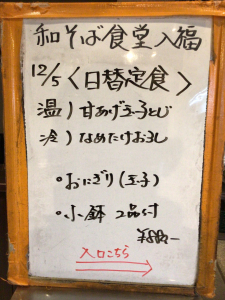 和そば食堂入福
12/5〈日替定食〉
温）甘あげ玉子とじ
冷）なめたけおろし
・おにぎり（玉子）
・小鉢 2品付
¥880ー
入口こちら